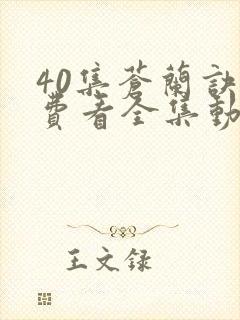 40集蒼蘭訣
費看全集動
王文録